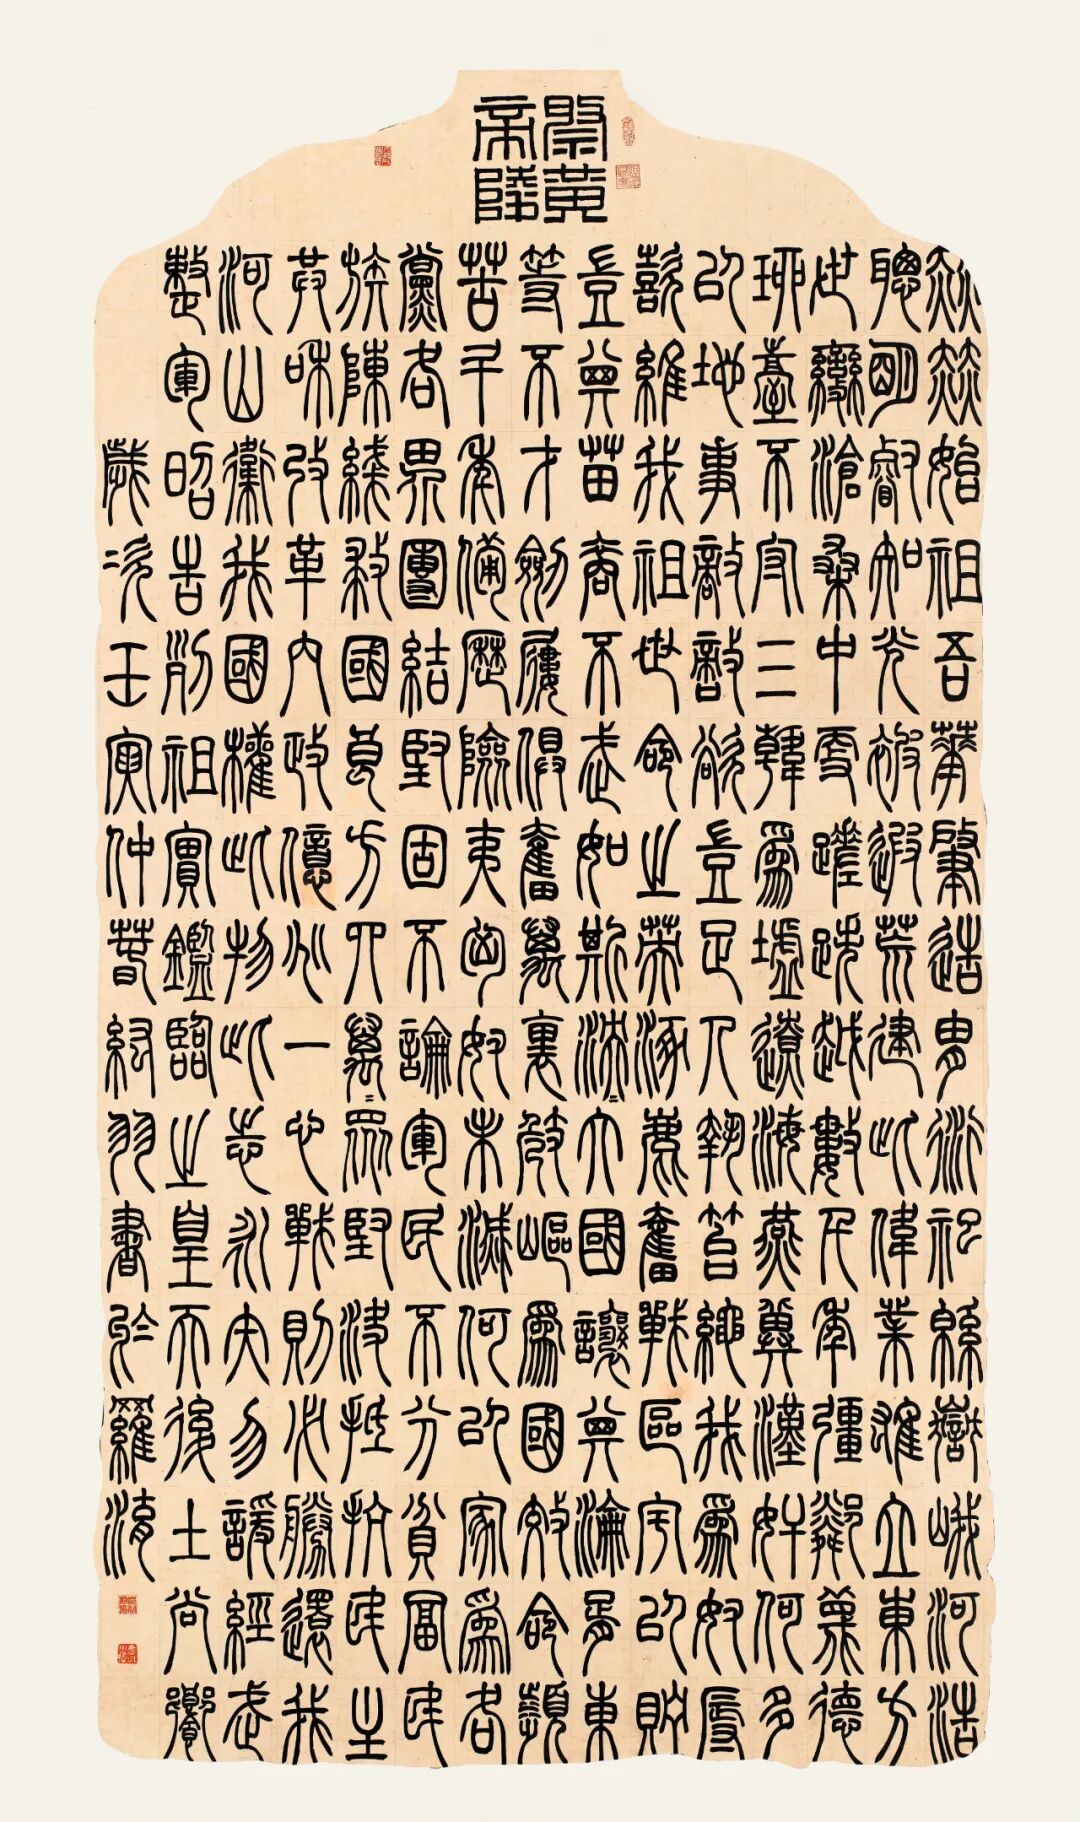 祭黃帝陵
赫赫始祖吾華肇造冑衍祀緜嶽峨河浩
聰明睿知光被遐荒建此偉業雄立東方
世變滄桑中更蹉跌越數千年彊鄰蔑德
琉臺不守三韓為墟遼海燕冀漢奸何多
以地事敵敵欲豈足人執笞繩我為奴辱
懿維我祖世命之榮涿鹿奮戰區宇以貯
豈其苗裔不武如斯泱=大國讓其淪胥東
等不才劍屨俱奮萬裏崎嶇為國效命頻
苦斗年備歷險夷匈奴未滅何以家為各
黨各界團結堅固不論軍民不分貧富民
族陳綫救國良方四萬=眾堅決抵抗民主
共和改革內政億兆一心戰則必勝還我
河山衛我國權此物此志永矢勿諼經武
整軍昭告列祖實鑑臨之皇天後土尚饗
歲次壬寅仲春紹羽書於羅